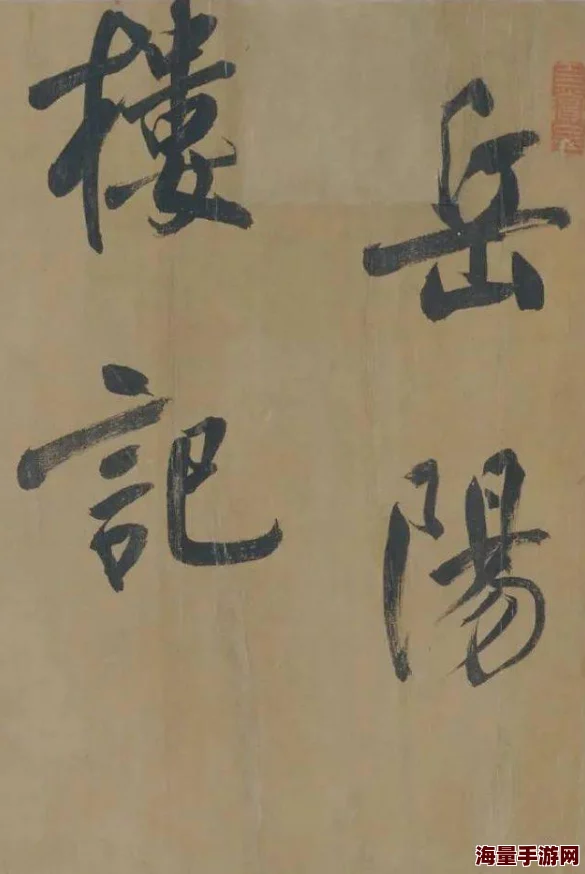 岳陽
樓記
海量手游网